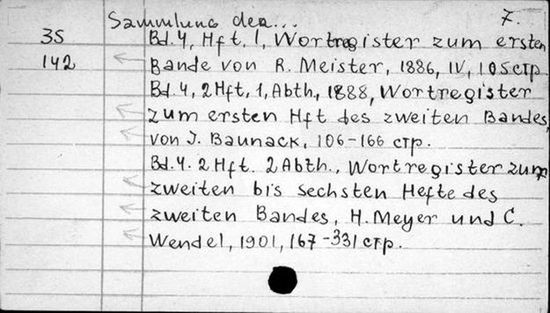 Sammlung der... 7.
35 Bd. 4, Hft. 1, Wortregister zum ersten
142 Bande von R. Meister, 1886, IV, 105 стр
Bd. 4, 2 Hft, 1, Abth., 1888, Wortregister
zum ersten Hft des zweiten Bandes,
von J. Baunack, 106-166 стр.
Bd. 4. 2 Hft. 2 Abth., Wortregister zum
zweiten bis sechsten Hefte des
zweiten Bandes, H. Meyer und C.
Wendel, 1901, 167-331 стр.